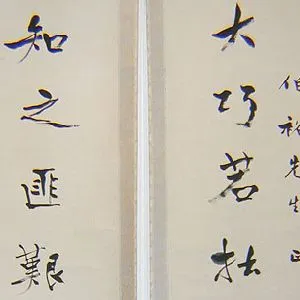 伯裕先生正
大巧若拙
知之匪艱